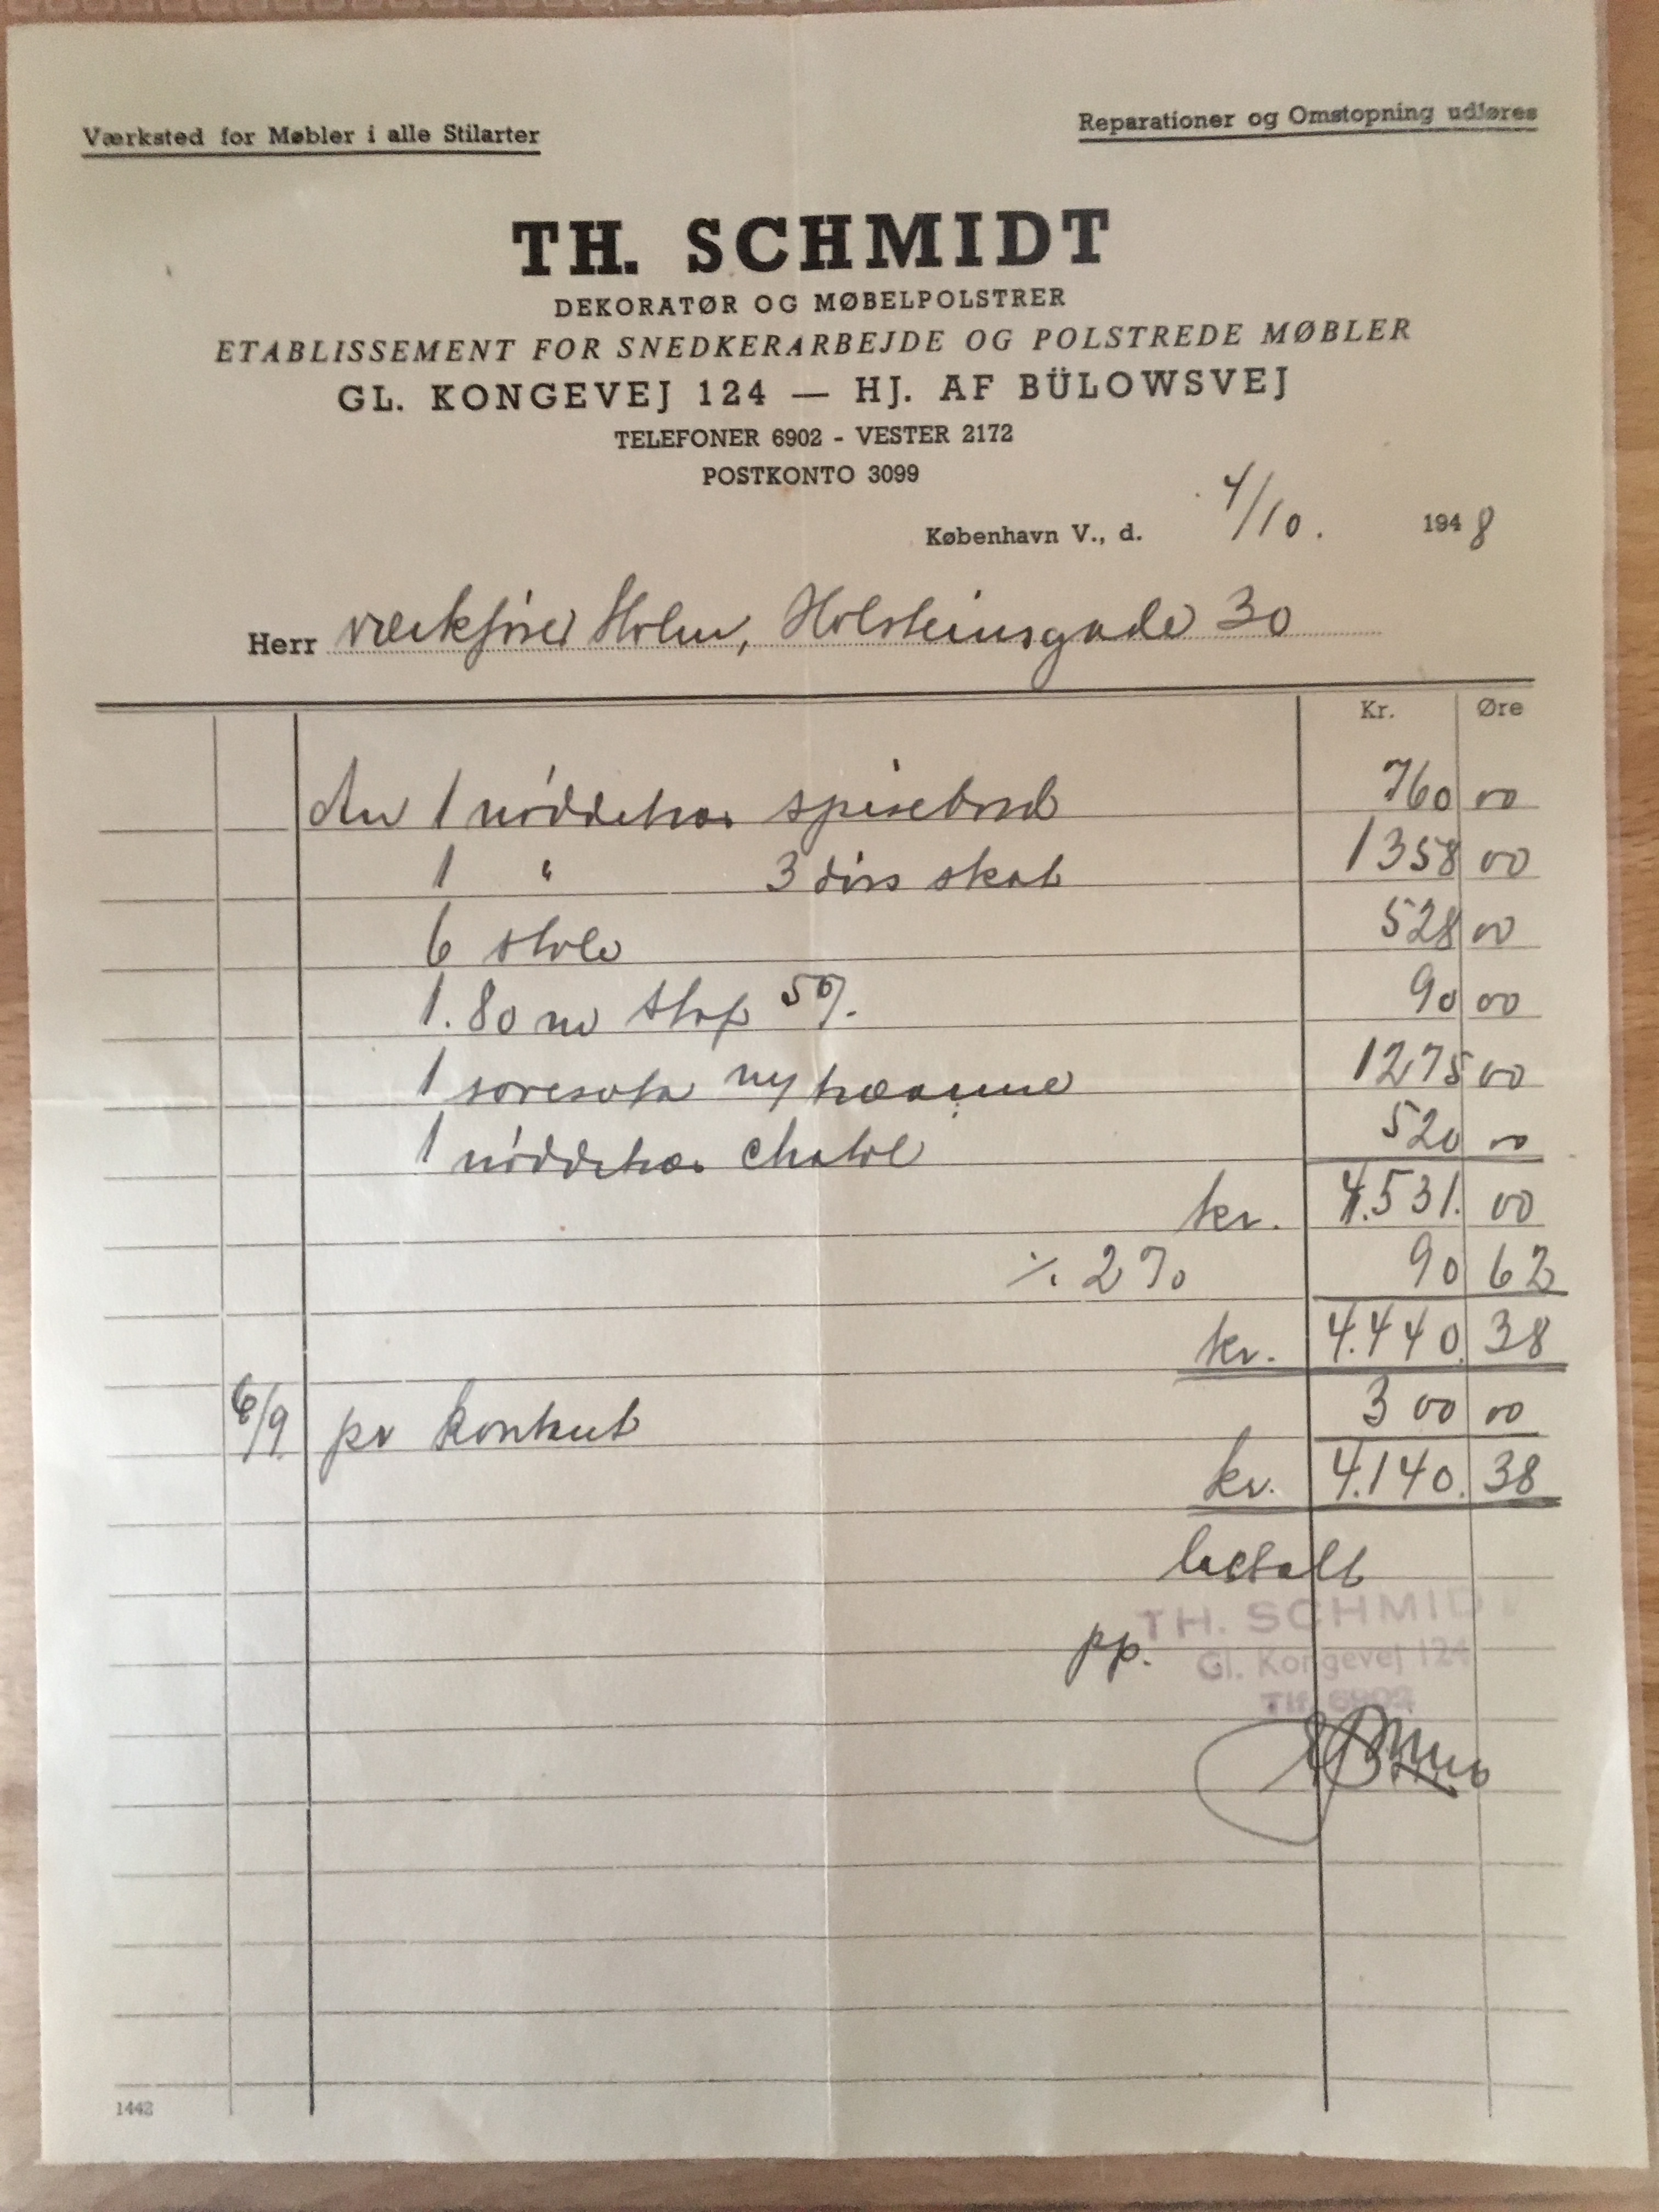 Værksted for Møbler i alle Stilarter
Reparationer og Omstopning udføres
TH. SCHMIDT
DEKORATØR OG MØBELPOLSTRER
ETABLISSEMENT FOR SNEDKERARBEJDE OG POLSTREDE MØBLER
GL. KONGEVEJ 124 — HJ. AF BÜLOWSVEJ
TELEFONER 6902 - VESTER 2172
POSTKONTO 3099
København V., d. 4/10. 1948
Herr værkfører Holm, Holsteinsgade 30
Kr. Øre
An 1 nøddetræs spisebord 760 00
1 " 3 dörs skab 1358 00
6 stole 528 00
1.80 m stof 50/. 90 00
1 sovesofa ny 1275 00
1 nøddetræs chatol 520 00
kr. 4.531. 00
./. 2% 90 62
kr. 4.440. 38
6/9 pr kontant 300 00
kr. 4.140. 38
betalt
pp. TH. SCHMIDT
Gl. Kongevej 124
Tlf. 6902
1442